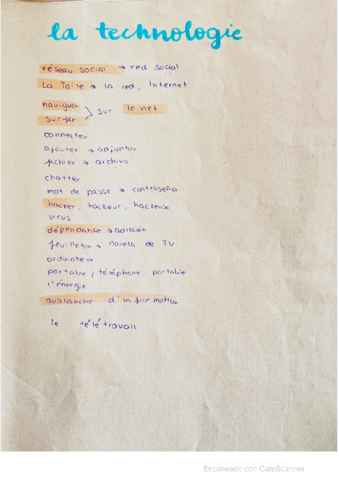 la technologie
réseau social → red social
La Toile → la red, Internet
naviguer
surfer
sur le net
connecter
ajouter → adjuntar
fichier → archivo
chatter
mot de passe → contraseña
hacker, hackeur, hackeuse
virus
dépendance → adicción
feuilleton → novela de TV
ordinateur
portable / téléphone portable
l'énergie
avalanche d'information
le télétravail
Escaneado con CamScanner